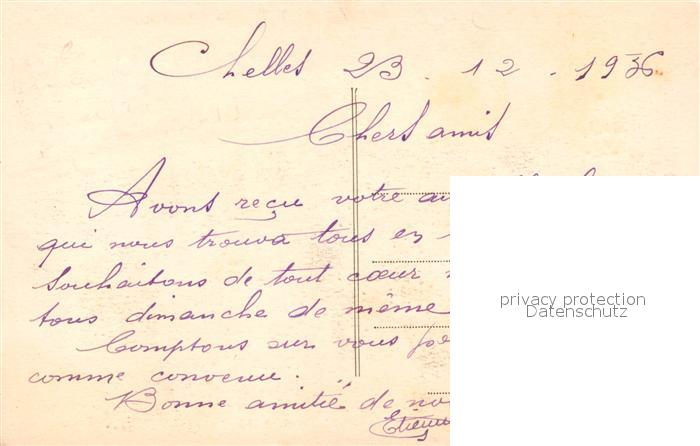 Chelles 23.12.1936
Chers amis
Avons reçu votre
qui nous trouva tous en
souhaitons de tout cœur
tous dimanche de même
Comptons sur vous
comme convenu.
Bonne amitié de
privacy protection
Datenschutz